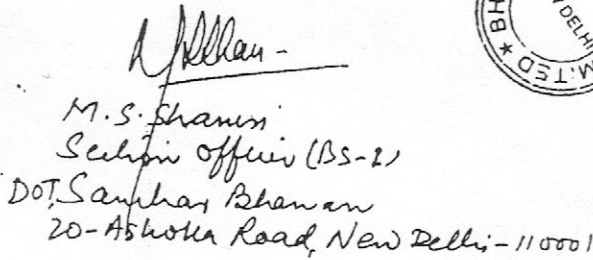 M.S. Shamsi
Section Officer (BS-2)
DOT, Sanchar Bhawan
20-Ashoka Road, New Delhi-110001
BH
DELHI
MITED *